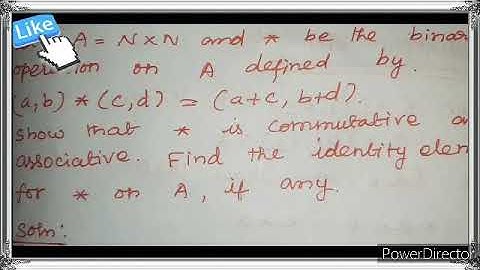 Like
A = N×N and * be the binar
operation on A defined by.
(a,b) * (c,d) = (a+c, b+d).
show that * is commutative a
associative. Find the identity elem
for * on A, if any.
Soln:
PowerDirector